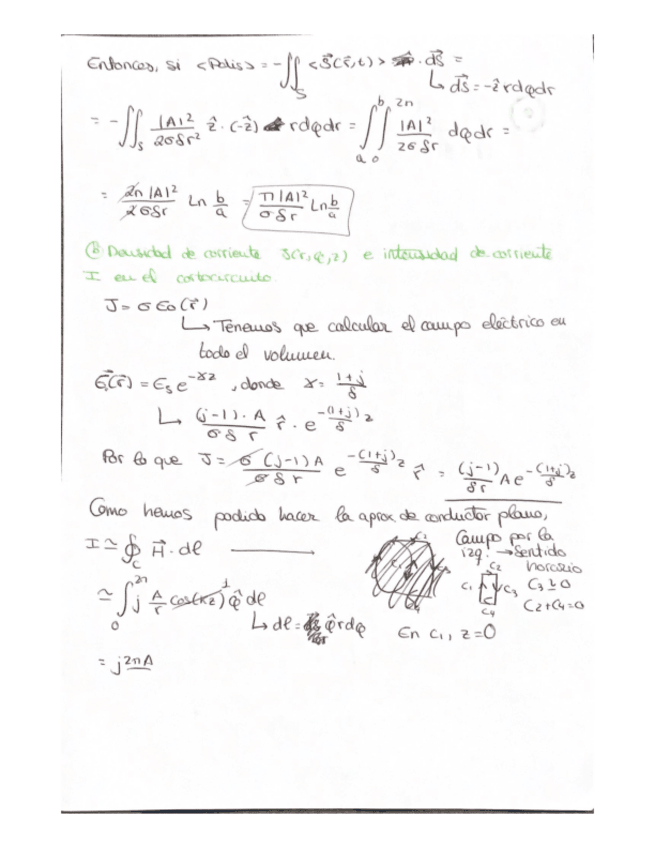 Entonces, si <Pdis> = - ∬_S <S⃗(r⃗,t)> · dS⃗ =
↳ dS⃗ = -ẑ r dφ dr
= - ∬_S |A|²/(2σδr²) ẑ · (-ẑ) r dφ dr = ∫_a^b ∫_0^2π |A|²/(2σδr) dφ dr =
= 2π|A|²/(2σδr) Ln b/a = π|A|²/(σδr) Ln b/a
ⓑ Densidad de corriente J(r,φ,z) e intensidad de corriente
I en el cortocircuito.
J = σ E0(r⃗)
↳ Tenemos que calcular el campo eléctrico en
todo el volumen.
E(r⃗) = E_s e^(-γz), donde γ = (1+j)/δ
↳ (j-1)·A/(σδ r) r̂ · e^(-(1+j)/δ z)
Por lo que J = σ (j-1)A/(σδ r) e^(-(1+j)/δ z) r̂ = (j-1)/(δr) A e^(-(1+j)/δ z)
Como hemos podido hacer la aprox de conductor plano,
I ≃ ∮_C H⃗ · dl
Campo por la
izq! → Sentido
horario
≃ ∫_0^2π j A/r cos(kz) 1 φ̂ dl
↳ dl = φ̂ r dφ
C1 C2 C3 C4
C3 ≃ 0
C2 + C4 = 0
En C1, z = 0
= j2πA